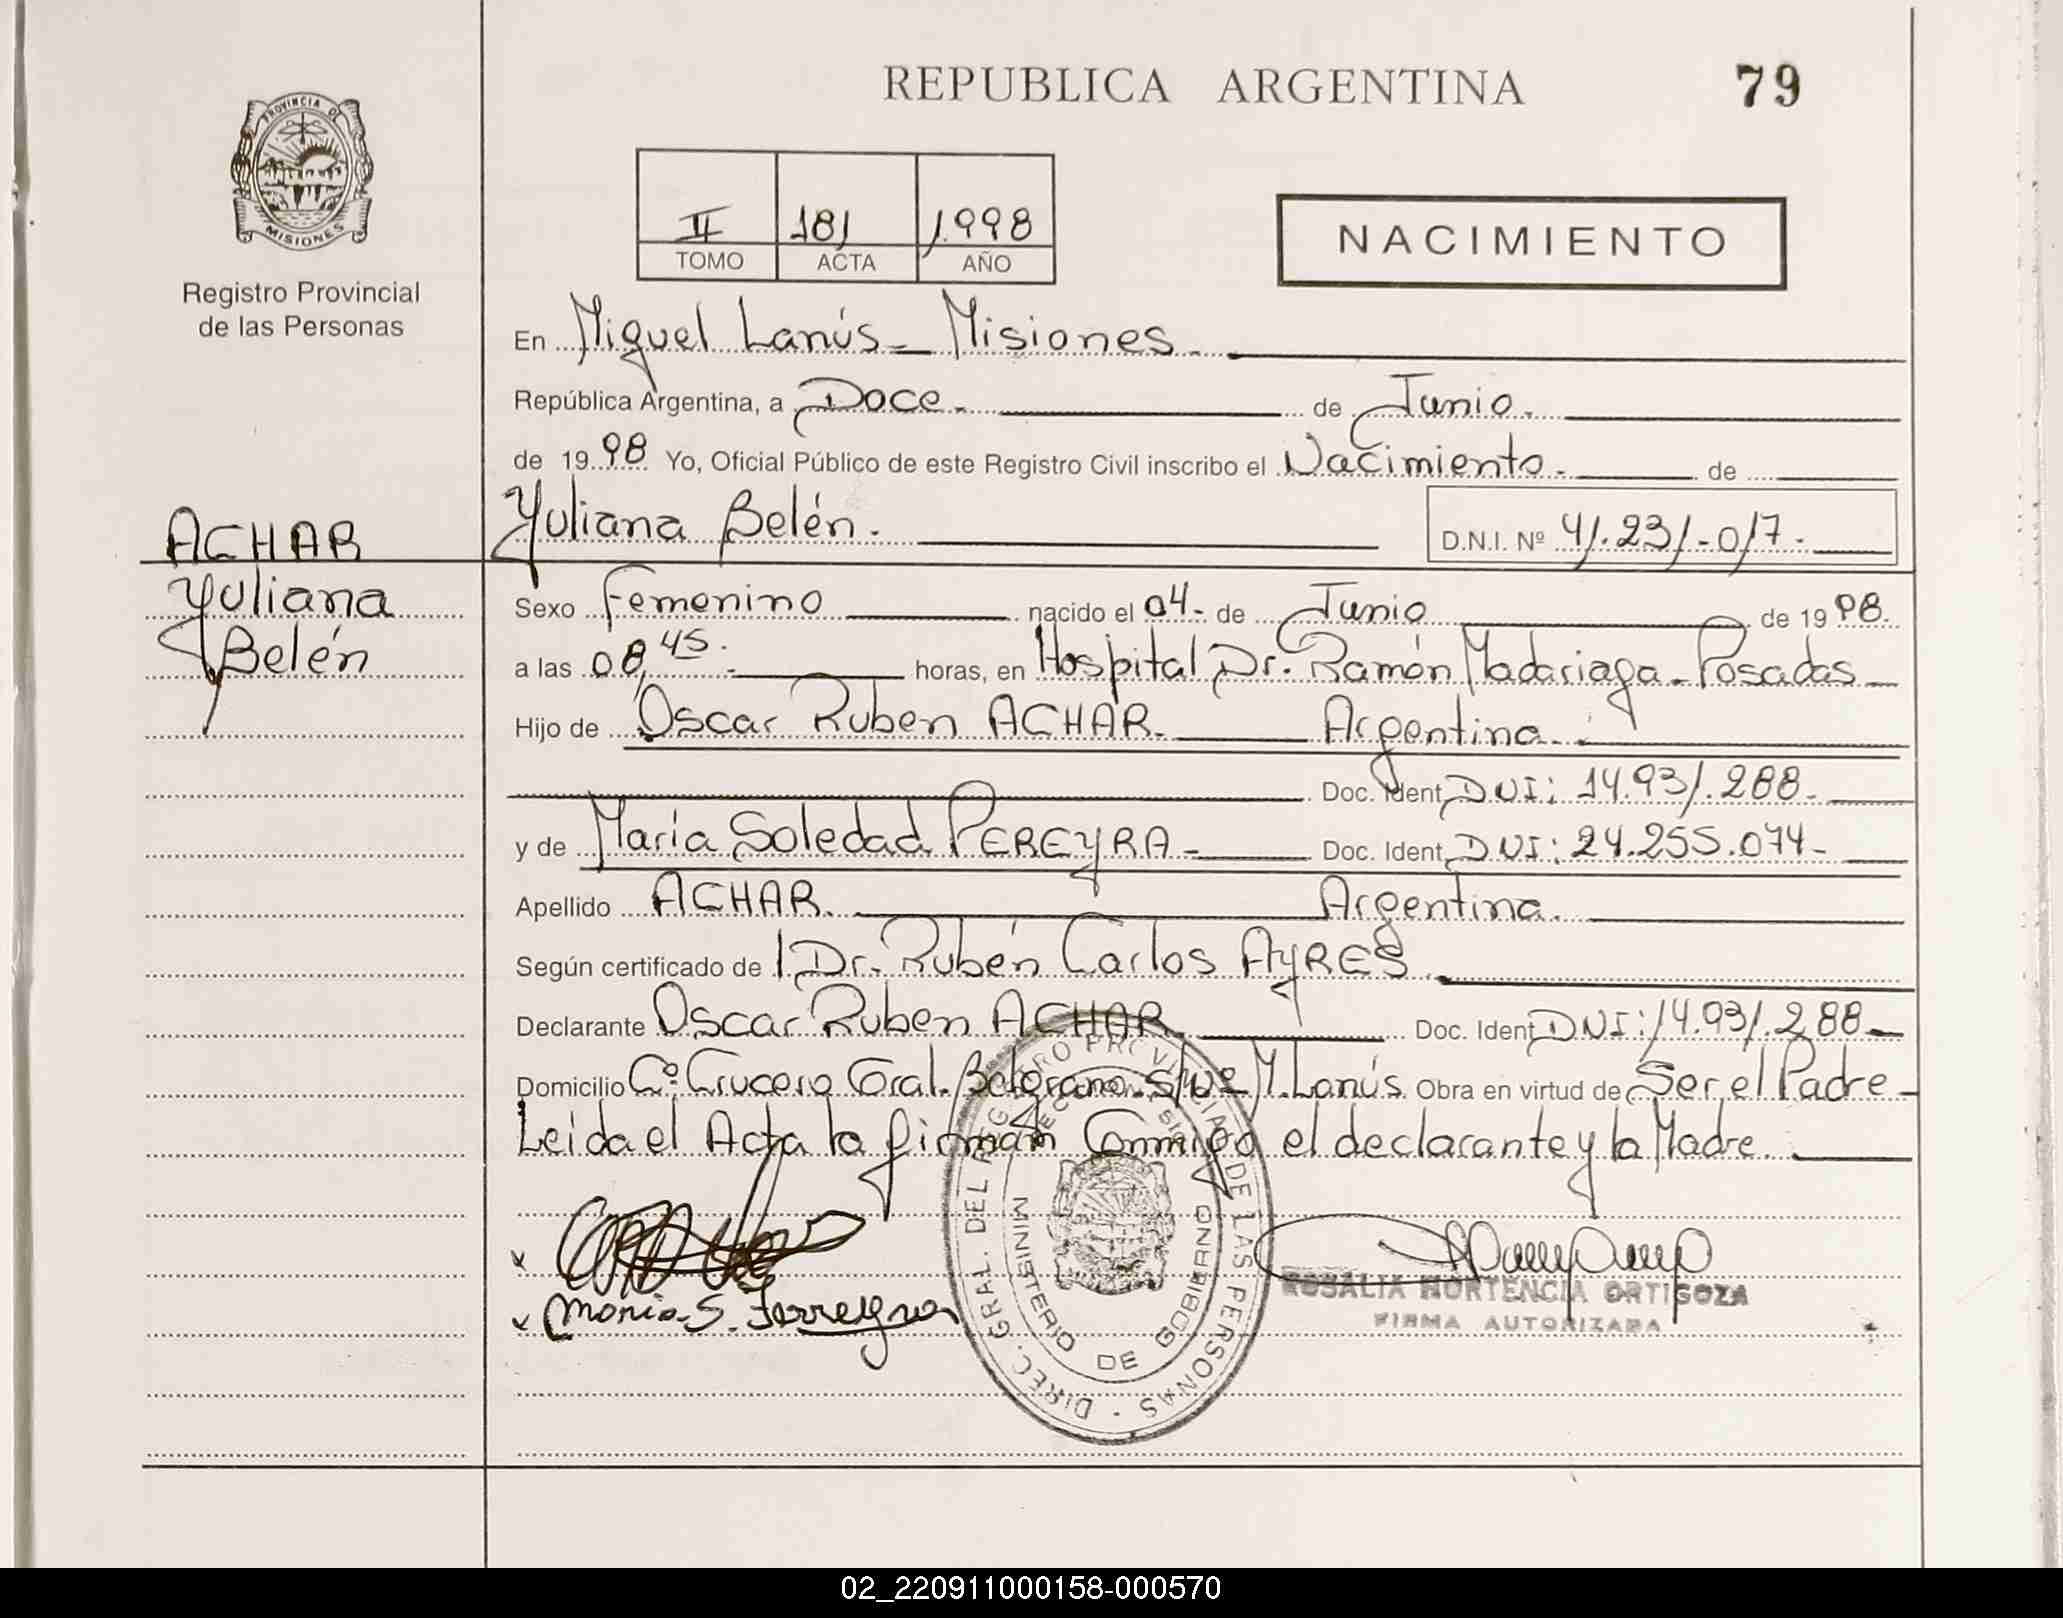 REPUBLICA ARGENTINA
79
PROVINCIA DE MISIONES
Registro Provincial
de las Personas
II 181 1998
TOMO ACTA AÑO
NACIMIENTO
En Miguel Lanús - Misiones.
República Argentina, a Doce. de Junio.
de 1998 Yo, Oficial Público de este Registro Civil inscribo el Nacimiento. de
ACHAR
Yuliana
Belén
Yuliana Belén.
D.N.I. Nº 41.231.017.
Sexo Femenino nacido el 04. de Junio de 1998.
a las 08,45. horas, en Hospital Dr. Ramón Madariaga - Posadas
Hijo de Oscar Ruben ACHAR. Argentina.
Doc. Ident. DNI: 14.931.288.
y de María Soledad PEREYRA - Doc. Ident. DNI: 24.255.074-
Apellido ACHAR. Argentina.
Según certificado de l Dr. Rubén Carlos AYRES.
Declarante Oscar Ruben ACHAR Doc. Ident. DNI: 14.931.288
Domicilio Cº. Crucero Gral. Belgrano. S/Nº M. Lanús. Obra en virtud de Ser el Padre
Leida el Acta la firman Conmigo el declarante y la Madre.
DIREC. GRAL. DEL REGISTRO PROVINCIAL DE LAS PERSONAS
MINISTERIO DE GOBIERNO
ROSALIA HORTENCIA ORTIGOZA
FIRMA AUTORIZADA
02_220911000158-000570